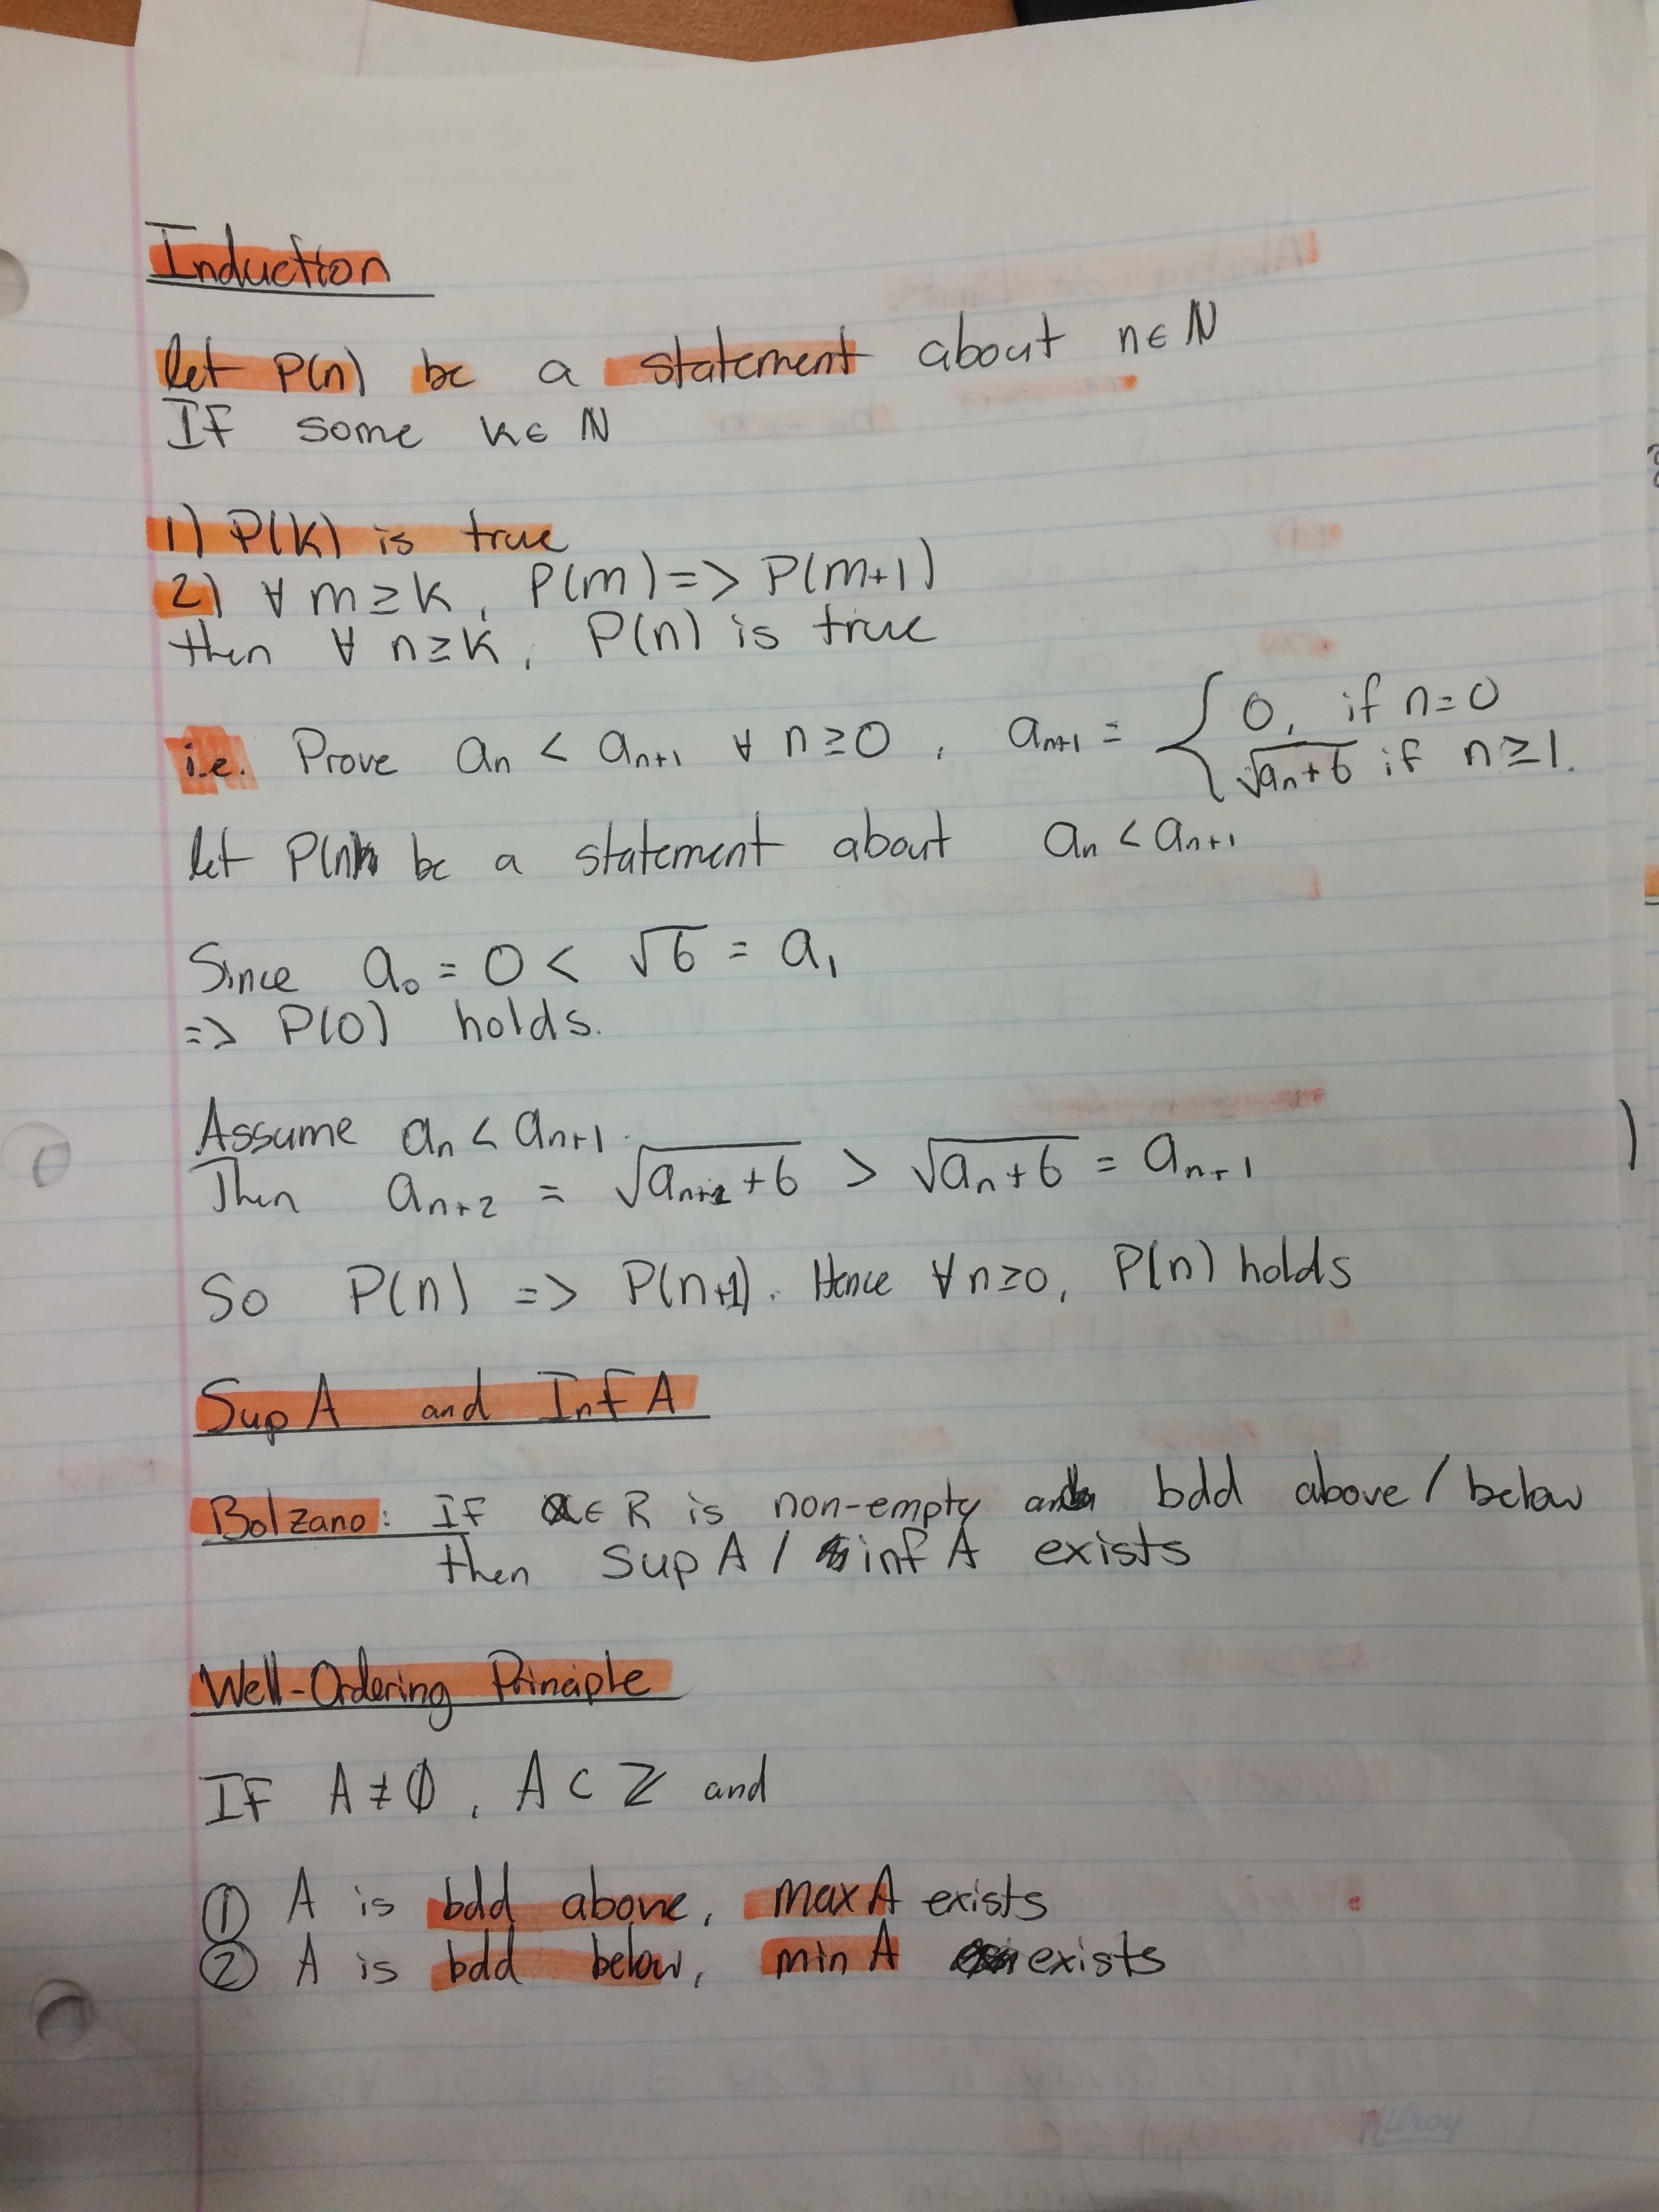 Induction
let P(n) be a statement about n∈ℕ
If some k∈ℕ
1) P(k) is true
2) ∀ m≥k, P(m) => P(m+1)
then ∀ n≥k, P(n) is true
i.e. Prove aₙ < aₙ₊₁ ∀ n≥0, aₙ₊₁ = { 0, if n=0
√(aₙ+6) if n≥1.
let P(n) be a statement about aₙ < aₙ₊₁
Since a₀ = 0 < √6 = a₁
=> P(0) holds.
Assume aₙ < aₙ₊₁.
Then aₙ₊₂ = √(aₙ₊₁+6) > √(aₙ+6) = aₙ₊₁
So P(n) => P(n+1). Hence ∀n≥0, P(n) holds
Sup A and Inf A
Bolzano: If A∈R is non-empty and bdd above/below
then sup A / inf A exists
Well-Ordering Principle
If A≠∅, A⊂ℤ and
① A is bdd above, max A exists
② A is bdd below, min A exists
Hilroy